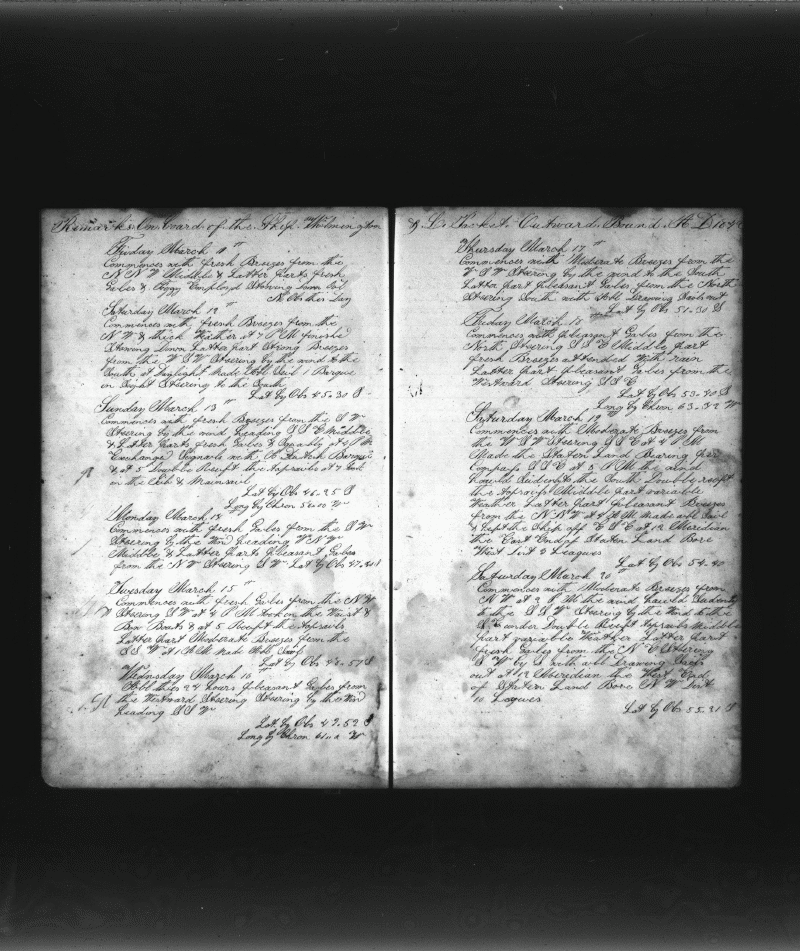 Remarks On board of the Ship Wilmington
Friday March 11th
Commences with fresh Breezes from the
N N W Middle & Latter parts fresh
Gales & Foggy Employd Stowing Down Oil
No Obs this Day
Saturday March 12th
Commences with fresh Breezes from the
N W & thick Weather at 7 PM finishd
Stowing Down Latter part Strong Breezes
from the W S W Steering by the wind to the
South at Daylight Made Sail 1 Barque
in Sight Steering to the South
Lat by Obs 45.30 S
Sunday March 13th
Commences with fresh Breezes from the S W
Steering by the wind Heading S S E Middle
& Latter Parts fresh Gales & Squally at 3 PM
Exchangd Signals with A Dutch Barque
& at 5 Double Reeft the topsails at 7 took
in the Jib & Mainsail
Lat by Obs 46.25 S
Long by Chron 58.00 W
Monday March 14
Commences with fresh Gales from the S W
Steering by the Wind Heading W N W
Middle & Latter Parts Pleasant Gales
from the N W Steering S W Lat by Obs 47.21 S
Tuesday March 15th
Commences with fresh Gales from the N W
Steering S W at 4 PM took on the Waist &
Bow Boats & at 5 Reeft the topsails
Latter part Moderate Breezes from the
S S W at 1 PM Made Sail
Lat by Obs 48.57 S
Wednesday March 16
All this 24 hours pleasant Gales from
the Westward Steering by the Wind
heading S S W
Lat by Obs 49.52 S
Long by Chron W
& L. Packet Outward Bound A D 184
Thursday March 17th
Commences with Moderate Breezes from the
W S W Steering by the wind to the South
Latter part pleasant Gales from the North
Steering South with all Drawing Sails out
Lat by Obs 51.30 S
Friday March 18
Commences with pleasant Gales from the
North Steering S S E Middle part
fresh Breezes attended With rain
Latter part Pleasant Gales from the
Westward Steering S S E
Lat by Obs 53.40 S
Long by Chron 63.32 W
Saturday March 19
Commences with Moderate Breezes from
the W S W Steering S S E at 4 PM
Made the Staten Land Bearing per
Compass S S E at 5 PM the wind
hauld Sudenly to the South Doubly reeft
the topsails Middle part variable
Weather Latter part Pleasant Breezes
from the N N W at 4 AM Made all Sail
& Kept the Ship off E S E at 12 Meredian
the East End of Staten Land Bore
West Dist 3 Leagues
Lat by Obs 54.40
Saturday March 20
Commences with Moderate Breezes from
N W at 2 PM the wind hawld Sudenly
to the S S W Steering by the Wind to the
S E under Double Reeft topsails Middle
part variable Weather Latter part
fresh Gales from the N E Steering
S W by S with all Drawing Sails
out at 12 Meredian the West End
of Staten Land Bore N W Dist
10 Leagues
Lat by Obs 55.31 S